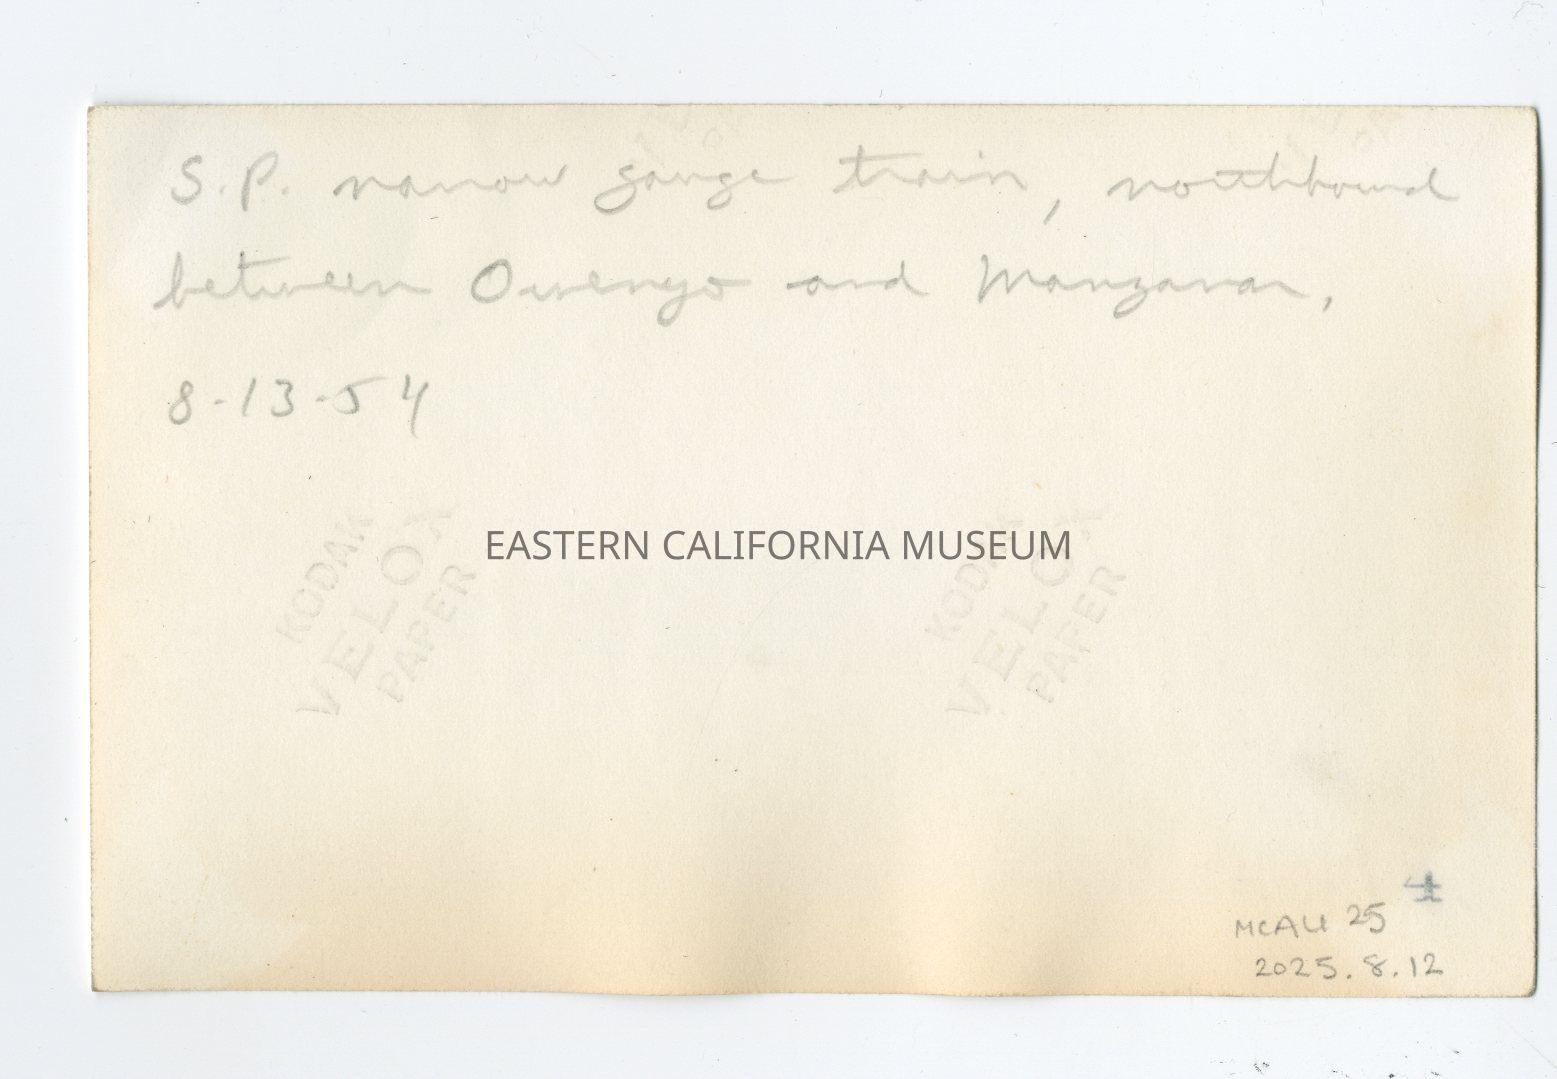 S.P. narrow gauge train, northbound
between Owenyo and Manzanar,
8-13-54
EASTERN CALIFORNIA MUSEUM
KODAK
VELOX
PAPER
KODAK
VELOX
PAPER
MCALI 25
2025.8.12